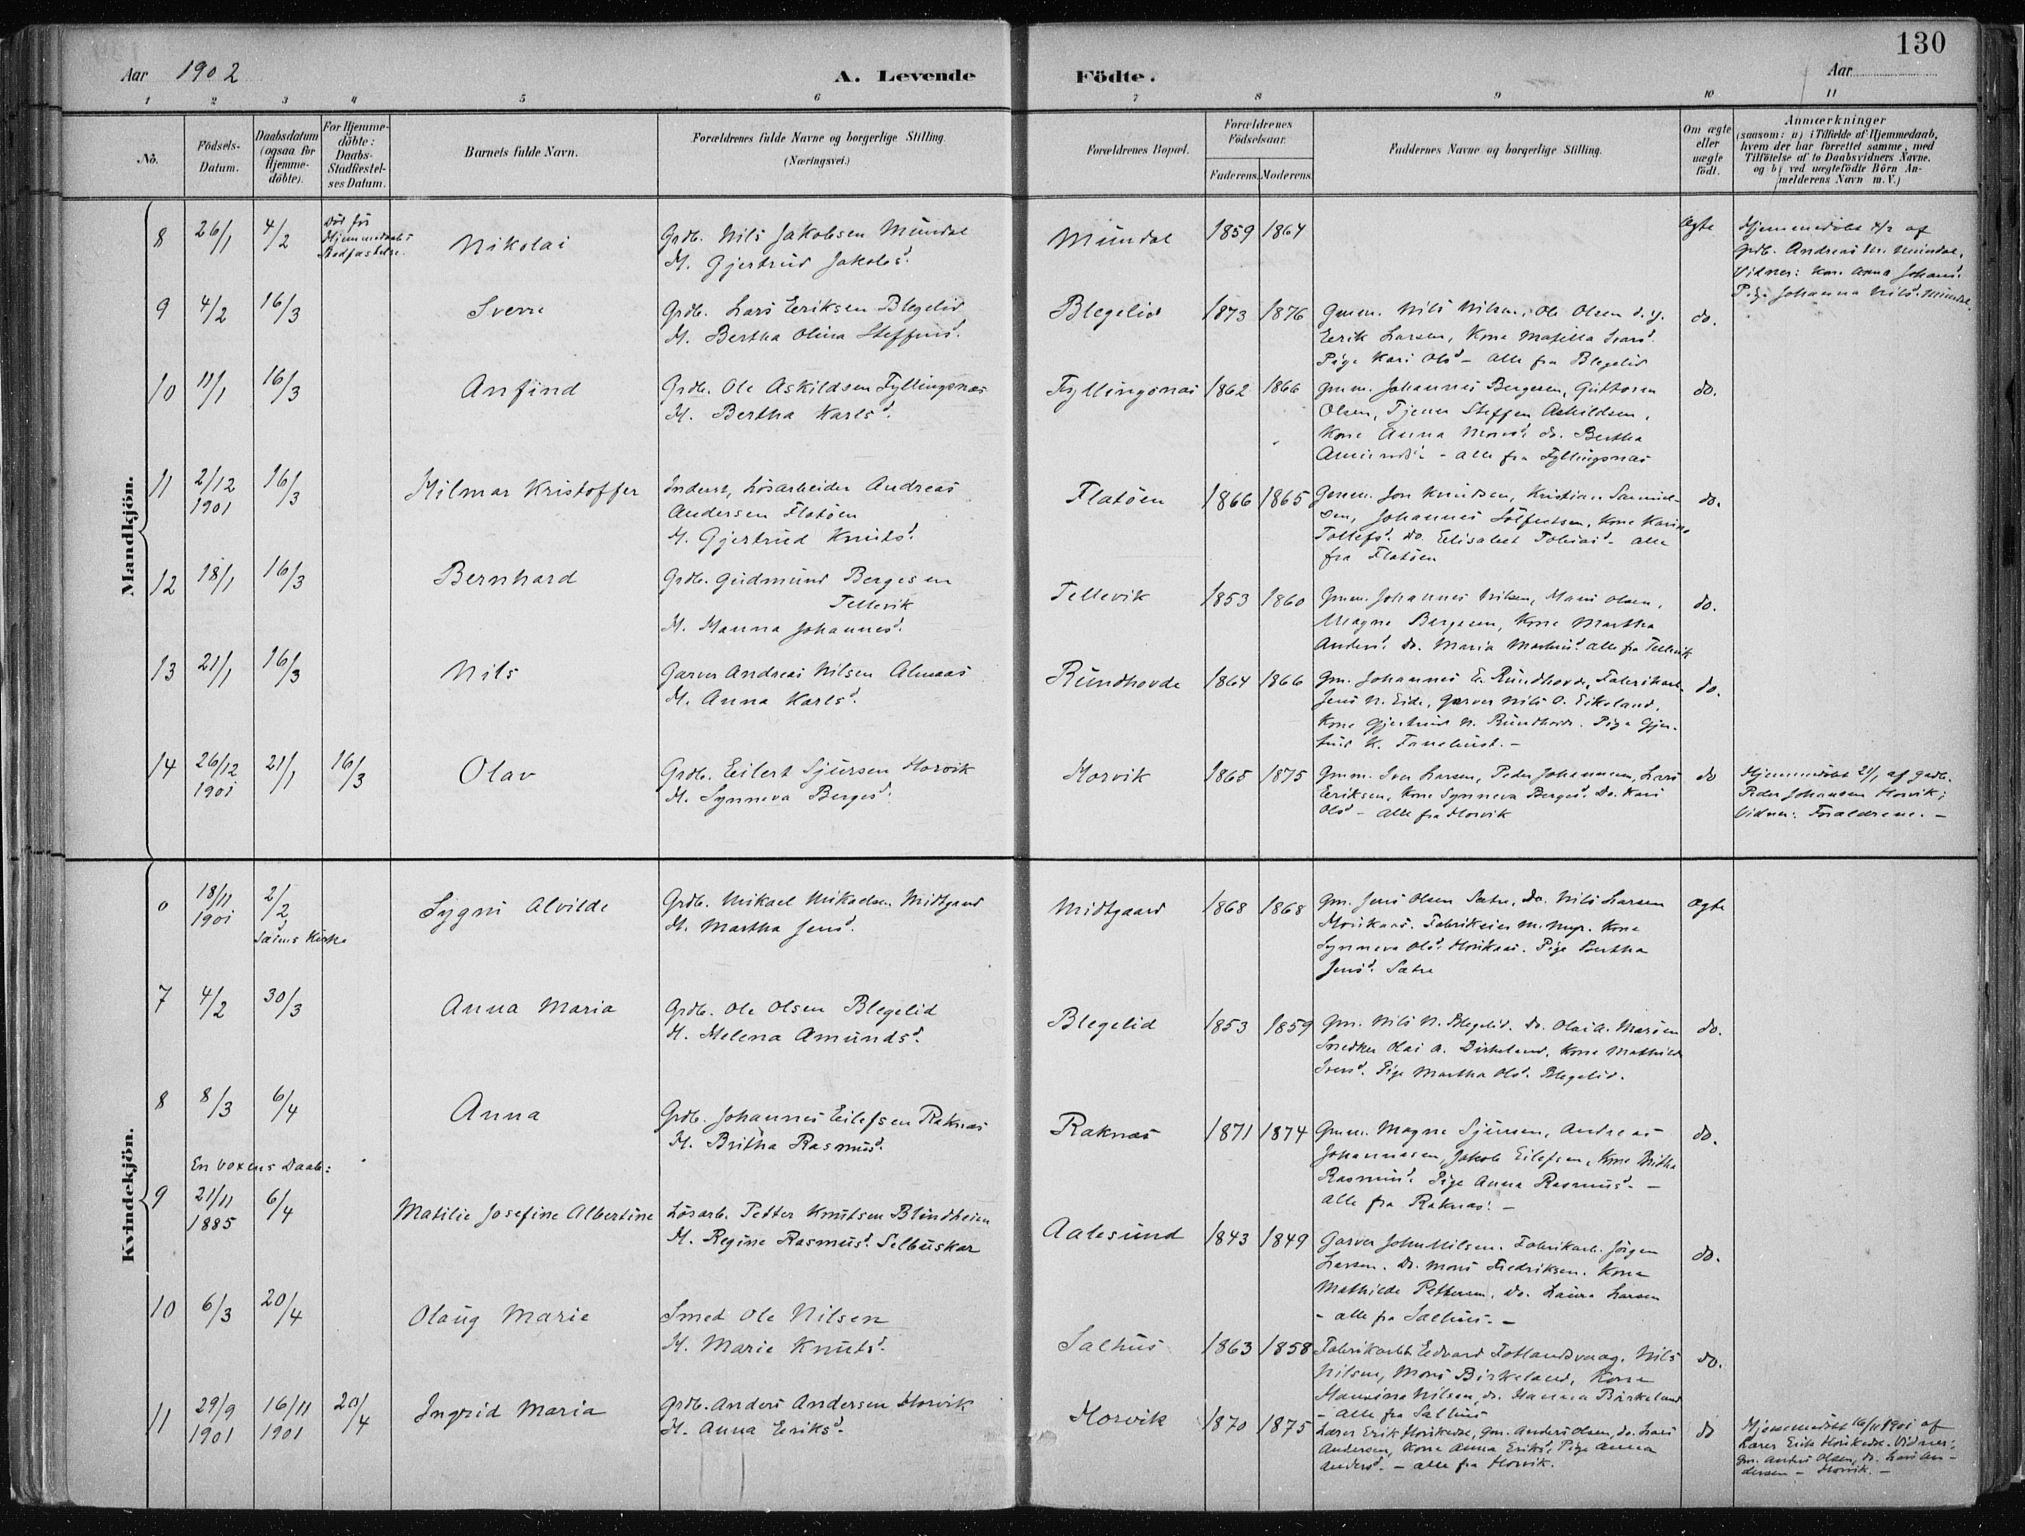 130
Aar 1902
A. Levende
Födte.
Aar
1 2 3 4 5 6 7 8 9 10 11
No.
Födsels-
Datum.
Daabsdatum
(ogsaa for
Hjemme-
döbte).
For Hjemme-
döbte:
Daabs-
Stadfæstel-
ses Datum.
Barnets fulde Navn.
Forældrenes fulde Navne og borgerlige Stilling.
(Næringsvei.)
Forældrenes Bopæl.
Forældrenes
Födselsaar.
Faderens. Moderens.
Faddernes Navne og borgerlige Stilling.
Om ægte
eller
uægte
födt.
Anmærkninger
(saasom: a) i Tilfælde af Hjemmedaab,
hvem der har forrettet samme, med
Tilföielse af to Daabsvidners Navne,
og b) ved uægtefödte Börn An-
melderens Navn m. V.)
Mandkjön.
8 26/1 4/2
Död før
Hjemmedaabs
Stadfæstelse.
Nikolai
Grdb. Nils Jakobsen Mundal
H. Gjertrud Jakobsd.
Mundal 1859 1864
Ægte
Hjemmedøbt 4/2 af
Grdb. Andreas Mundal.
Vidner: Kone Anna Johansd.
Pige Johanna Nilsd. Mundal
9 4/2 16/3
Sverre
Grdb. Lars Eriksen Blegelid
H. Bertha Olina Steffensd.
Blegelid 1873 1876
Gmm. Nils Nilsen, Ole Olsen d.y.
Eerik Larsen, Kone Matilla Larsd.
Pige Kari Olsd. - alle fra Blegelid
do.
10 11/1 16/3
Anfind
Grdb. Ole Askildsen Fyllingsnæs
H. Bertha Karlsd.
Fyllingsnæs 1862 1866
Gmm. Johannes Bergesen, Guttorm
Olsen, Tjener Steffen Askildsen,
Kone Anna Monsd. do. Bertha
- alle fra Fyllingsnæs
do.
11 2/12 1901 16/3
Hilmar Kristoffer
Inderst, Løsarbeider Andreas
Andersen Flatøen
H. Gjertrud Knutsd.
Flatøen 1866 1865
Gmm. Jon Knudsen, Kristian Samuel-
sen, Johannes Solfestsen, Kone Karina
Tollefsd. do. Elisabet Tobiasd. - alle
fra Flatøen
do.
12 18/1 16/3
Bernhard
Grdb. Gudmund Bergesen
Tellevik
H. Hanna Johannesd.
Tellevik 1853 1860
Gmm. Johannes Nilsen, Mons Olsen,
Magne Bergesen, Kone Martha
Andersd. do. Maria alle fra Tellevik
do.
13 21/1 16/3
Nils
Garver Andreas Nilsen Almaas
H. Anna Karlsd.
Rundhovde 1864 1866
Gm. Johannes E. Rundhovde, Fabrikarb.
Jens N. Eide, Garver Nils O. Eikeland,
Kone Gjertrud N. Rundhovde. Pige Gjer-
trud K. Tanehust. -
do.
14 26/12 1901 21/1 16/3
Olav
Grdb. Eilert Sjursen Horvik
H. Synneva Bergesd.
Horvik 1865 1875
Gmm. Iver Larsen, Peder Johannesen, Lars
Eriksen, Kone Synneva Bergesd. do. Kari
Olsd. - alle fra Horvik
do
Hjemmedøbt 21/1 af Grdb.
Peder Johansen Horvik;
Vidner: Forældrene. -
Kvindekjön.
6 18/11 1901 2/2
Sæims Kirke
Sygni Alvilde
Grdb. Mikael Mikaelsen Midtgaard
H. Martha Jensd.
Midtgaard 1868 1868
Gm. Jens Olsen Sætre, do. Nils Larsen
Horikaas. Fabrikeier M. Myr. Kone
Synneva Olsd. Horikaas. Pige Bertha
Jensd. Sætre
Ægte
7 4/2 30/3
Anna Maria
Grdb. Ole Olsen Blegelid
H. Helena Amundsd.
Blegelid 1853 1859
Gm. Nils N. Blegelid. do. Olai A. Marøen
Snedker Olai A. Birkeland, Kone Mathilde
Iversd. Pige Martha Olsd. Blegelid.
do.
8 8/3 6/4
Anna
Grdb. Johannes Eilefsen Raknæs
H. Britha Rasmusd.
Raknæs 1871 1874
Gmm. Magne Sjursen, Andreas
Johannesen, Jakob Eilefsen, Kone Britha
Rasmusd. Pige Anna Rasmusd. -
alle fra Raknæs. -
do.
En voxens Daab:
9 21/11 1885 6/4
Matilie Josefine Albertine
Løsarb. Petter Knutsen Blindheim
H. Regine Rasmusd. Selbuskar
Aalesund 1843 1849
Garver John Nilsen. Fabrikarb. Jørgen
Larsen. do. Mons Fredriksen. Kone
Mathilde Pettersen. do. Laura Larsen
- alle fra Salhus. -
do.
10 6/3 20/4
Olaug Marie
Smed Ole Nilsen
H. Marie Knutsd.
Salhus 1863 1858
Fabrikarbt. Edvard Totlandsvaag, Nils
Nilsen, Mons Birkeland, Kone
Nilsen, do. Hanna Birkeland
- alle fra Salhus
do.
11 29/9 1901 16/11 1901 20/4
Ingrid Maria
Grdb. Anders Andersen Horvik
H. Anna Eriksd.
Horvik 1870 1875
Lærer Erik Horikedal, Gm. Anders Olsen, do. Lars
Andersen, Kone Anna Eriksd. Pige Anna
Andersd. - alle fra Horvik.
do
Hjemmedøbt 16/11 1901 af
Lærer Erik Horikedal. Vidner:
Gm. Anders Olsen, do. Lars An-
dersen - Horvik. -